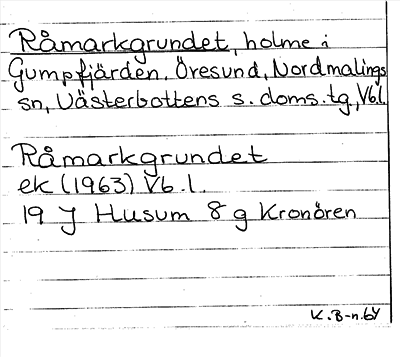 Råmarkgrundet, holme i
Gumpfjärden, Öresund, Nordmalings
sn, Västerbottens s. doms.tg, Vb.l.
Råmarkgrundet
ek (1963) Vb.l.
19 J Husum 8 g Kronören
K.B-n.64